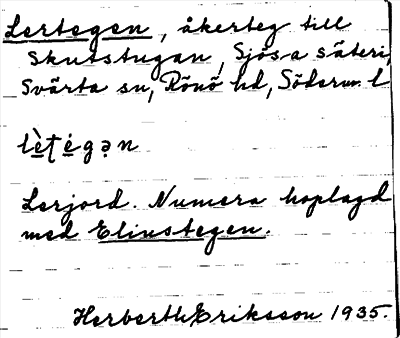 Lertegen, åkerteg till
Skutstugan, Sjösa säteri,
Svärta sn, Rönö hd, Söderm. l
lèṭégən
Lerjord. Numera hoplagd
med Elinstegen.
Herberth Eriksson 1935.